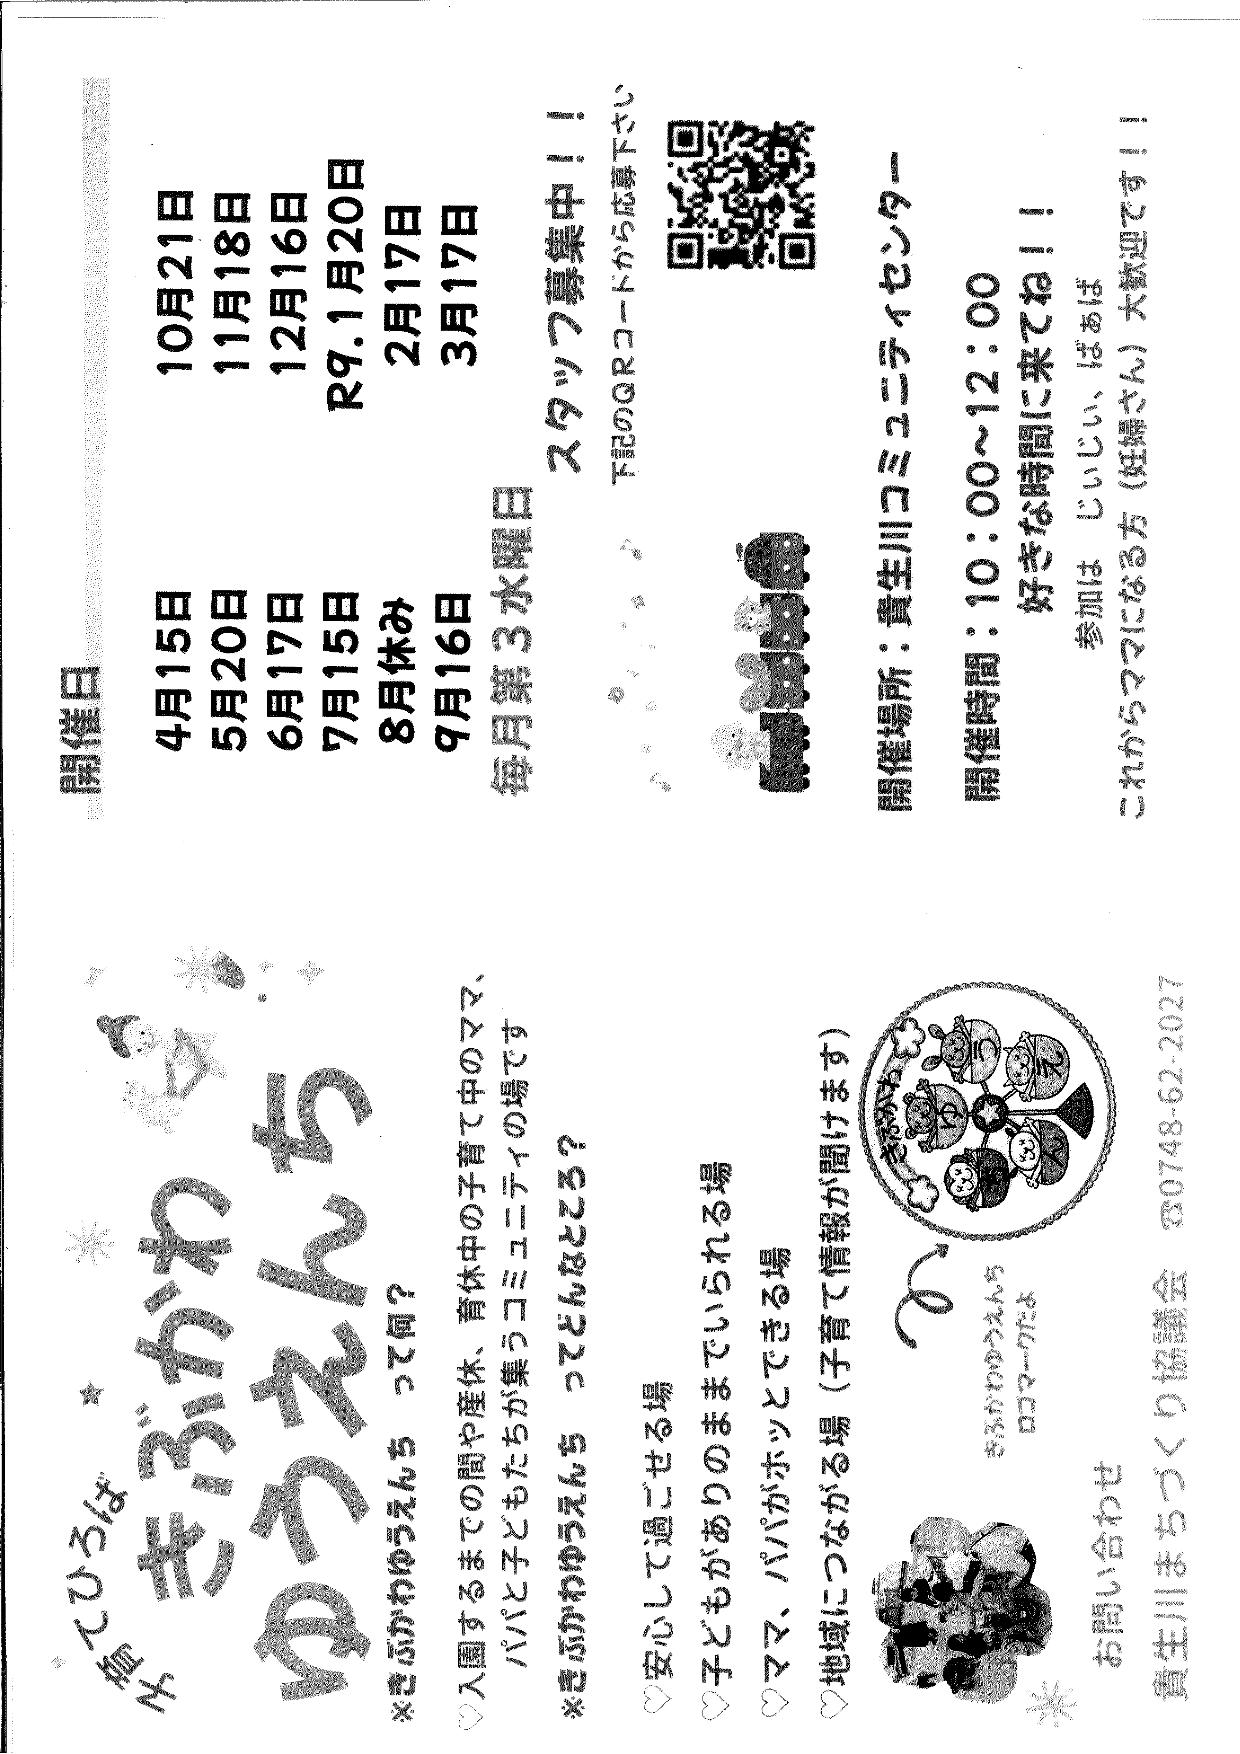 子育てひろば
きぶかわ
ゆうえんち
※きぶかわゆうえんち　って何？
♡入園するまでの間や産休、育休中の子育て中のママ、
パパと子どもたちが集うコミュニティの場です
※きぶかわゆうえんち　ってどんなところ？
♡安心して過ごせる場
♡子どもがありのままでいられる場
♡ママ、パパがホッとできる場
♡地域につながる場（子育て情報が聞けます）
きぶかわ
ゆ
う
え
ん
きぶかわゆうえんち
ロゴマークだよ
お問い合わせ
貴生川まちづくり協議会　☎0748-62-2027
開催日
4月15日
5月20日
6月17日
7月15日
8月休み
9月16日
10月21日
11月18日
12月16日
R9.1月20日
2月17日
3月17日
毎月第３水曜日
スタッフ募集中！！
下記のQRコードから応募下さい
開催場所：貴生川コミュニティセンター
開催時間：10：00〜12：00
好きな時間に来てね！！
参加は　じぃじぃ、ばぁば
これからママになる方（妊婦さん）大歓迎です！！